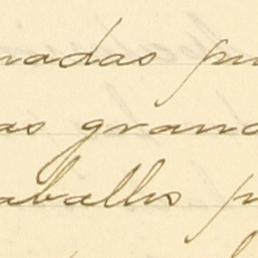 nadas pu
as grand
aballos p